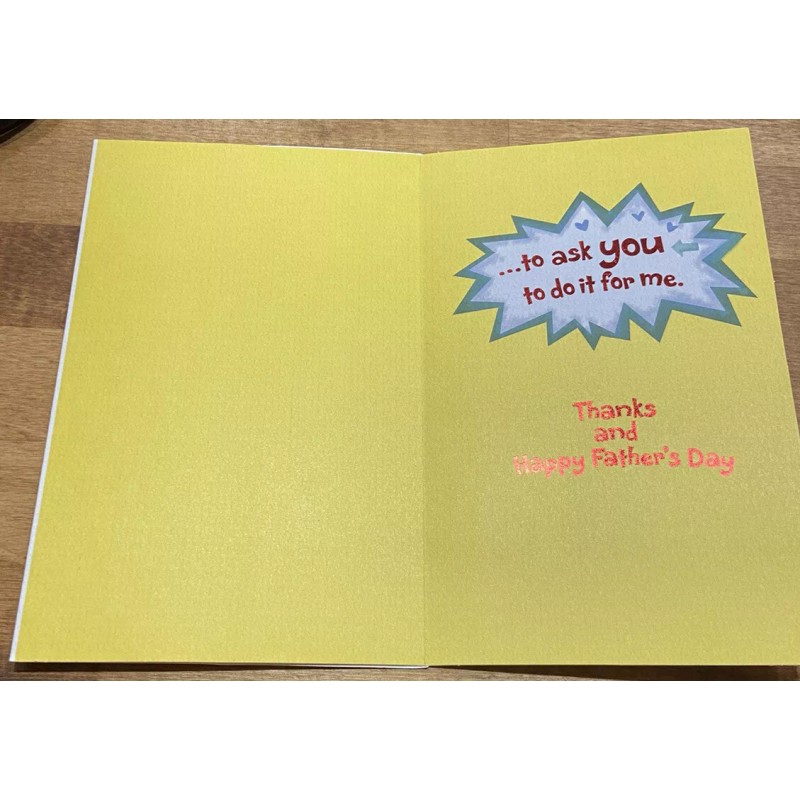 ...to ask you
to do it for me.
Thanks
and
Happy Father's Day